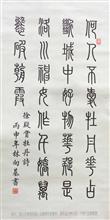 何人不愛牡丹花占
斷城中好物華疑是
洛川神女作千嬌萬
態破朝霞
徐凝賞牡丹詩
丙申年林向慕書